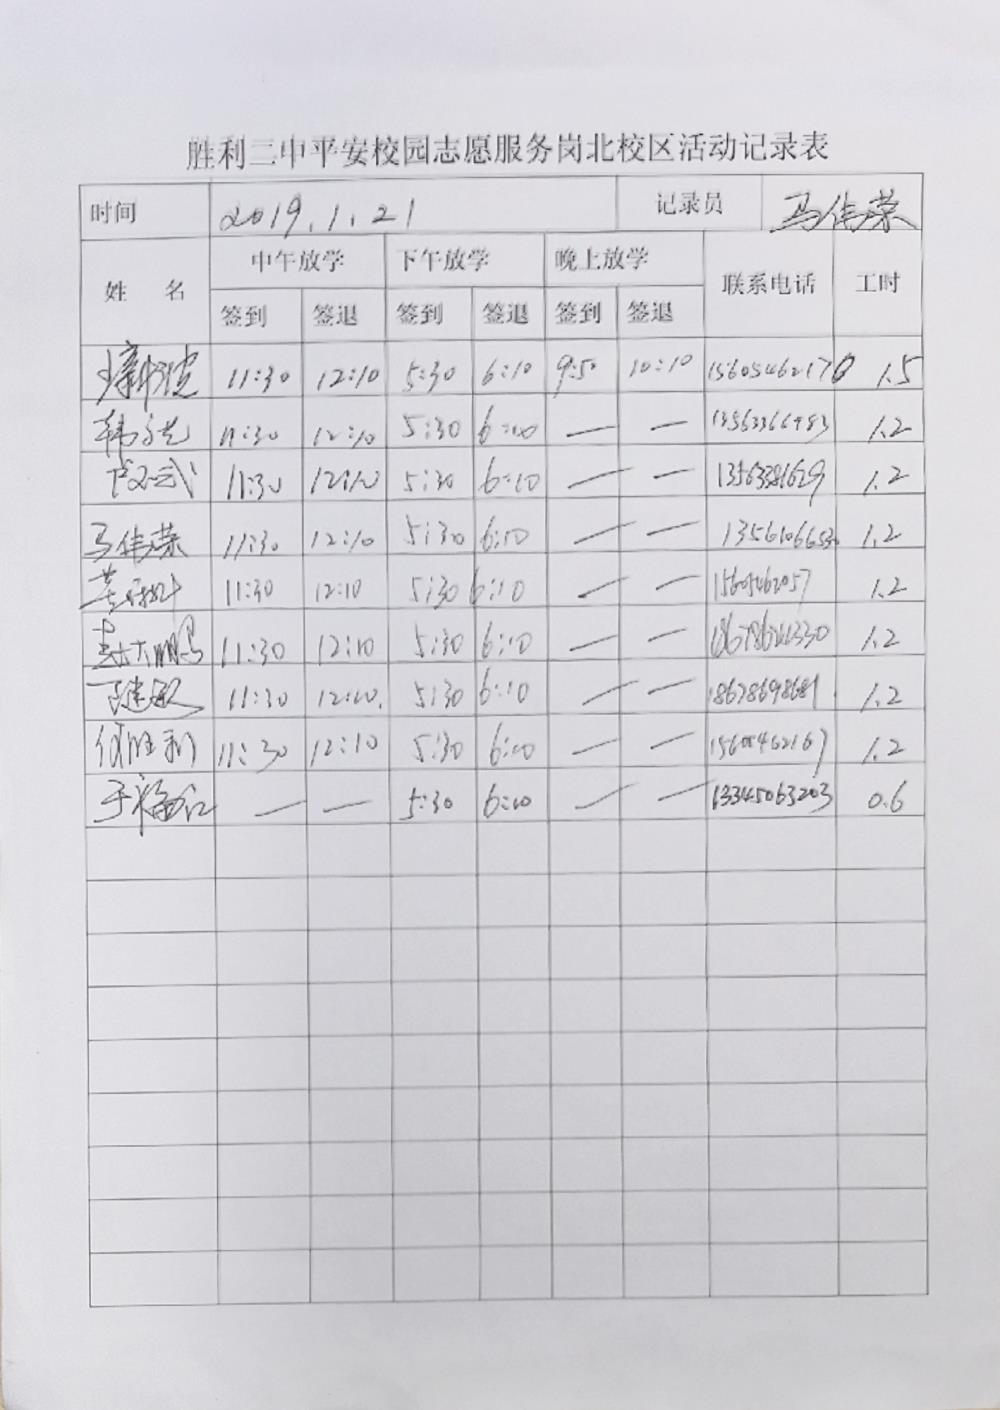 胜利二中平安校园志愿服务岗北校区活动记录表
时间 2019.1.21 记录员 马伟荣
姓 名 中午放学 下午放学 晚上放学 联系电话 工时
签到 签退 签到 签退 签到 签退
11:30 12:10 5:30 6:10 9:50 10:10 15605462170 1.5
11:30 12:10 5:30 6:10 — — 1.2
11:30 12:10 5:30 6:10 — — 13563381629 1.2
马伟荣 11:30 12:10 5:30 6:10 — — 1.2
11:30 12:10 5:30 6:10 — — 1.2
11:30 12:10 5:30 6:10 — — 1.2
11:30 12:10. 5:30 6:10 — — 1.2
何胜利 11:30 12:10 5:30 6:10 — — 15605462167 1.2
— — 5:30 6:10 — — 13345063203 0.6